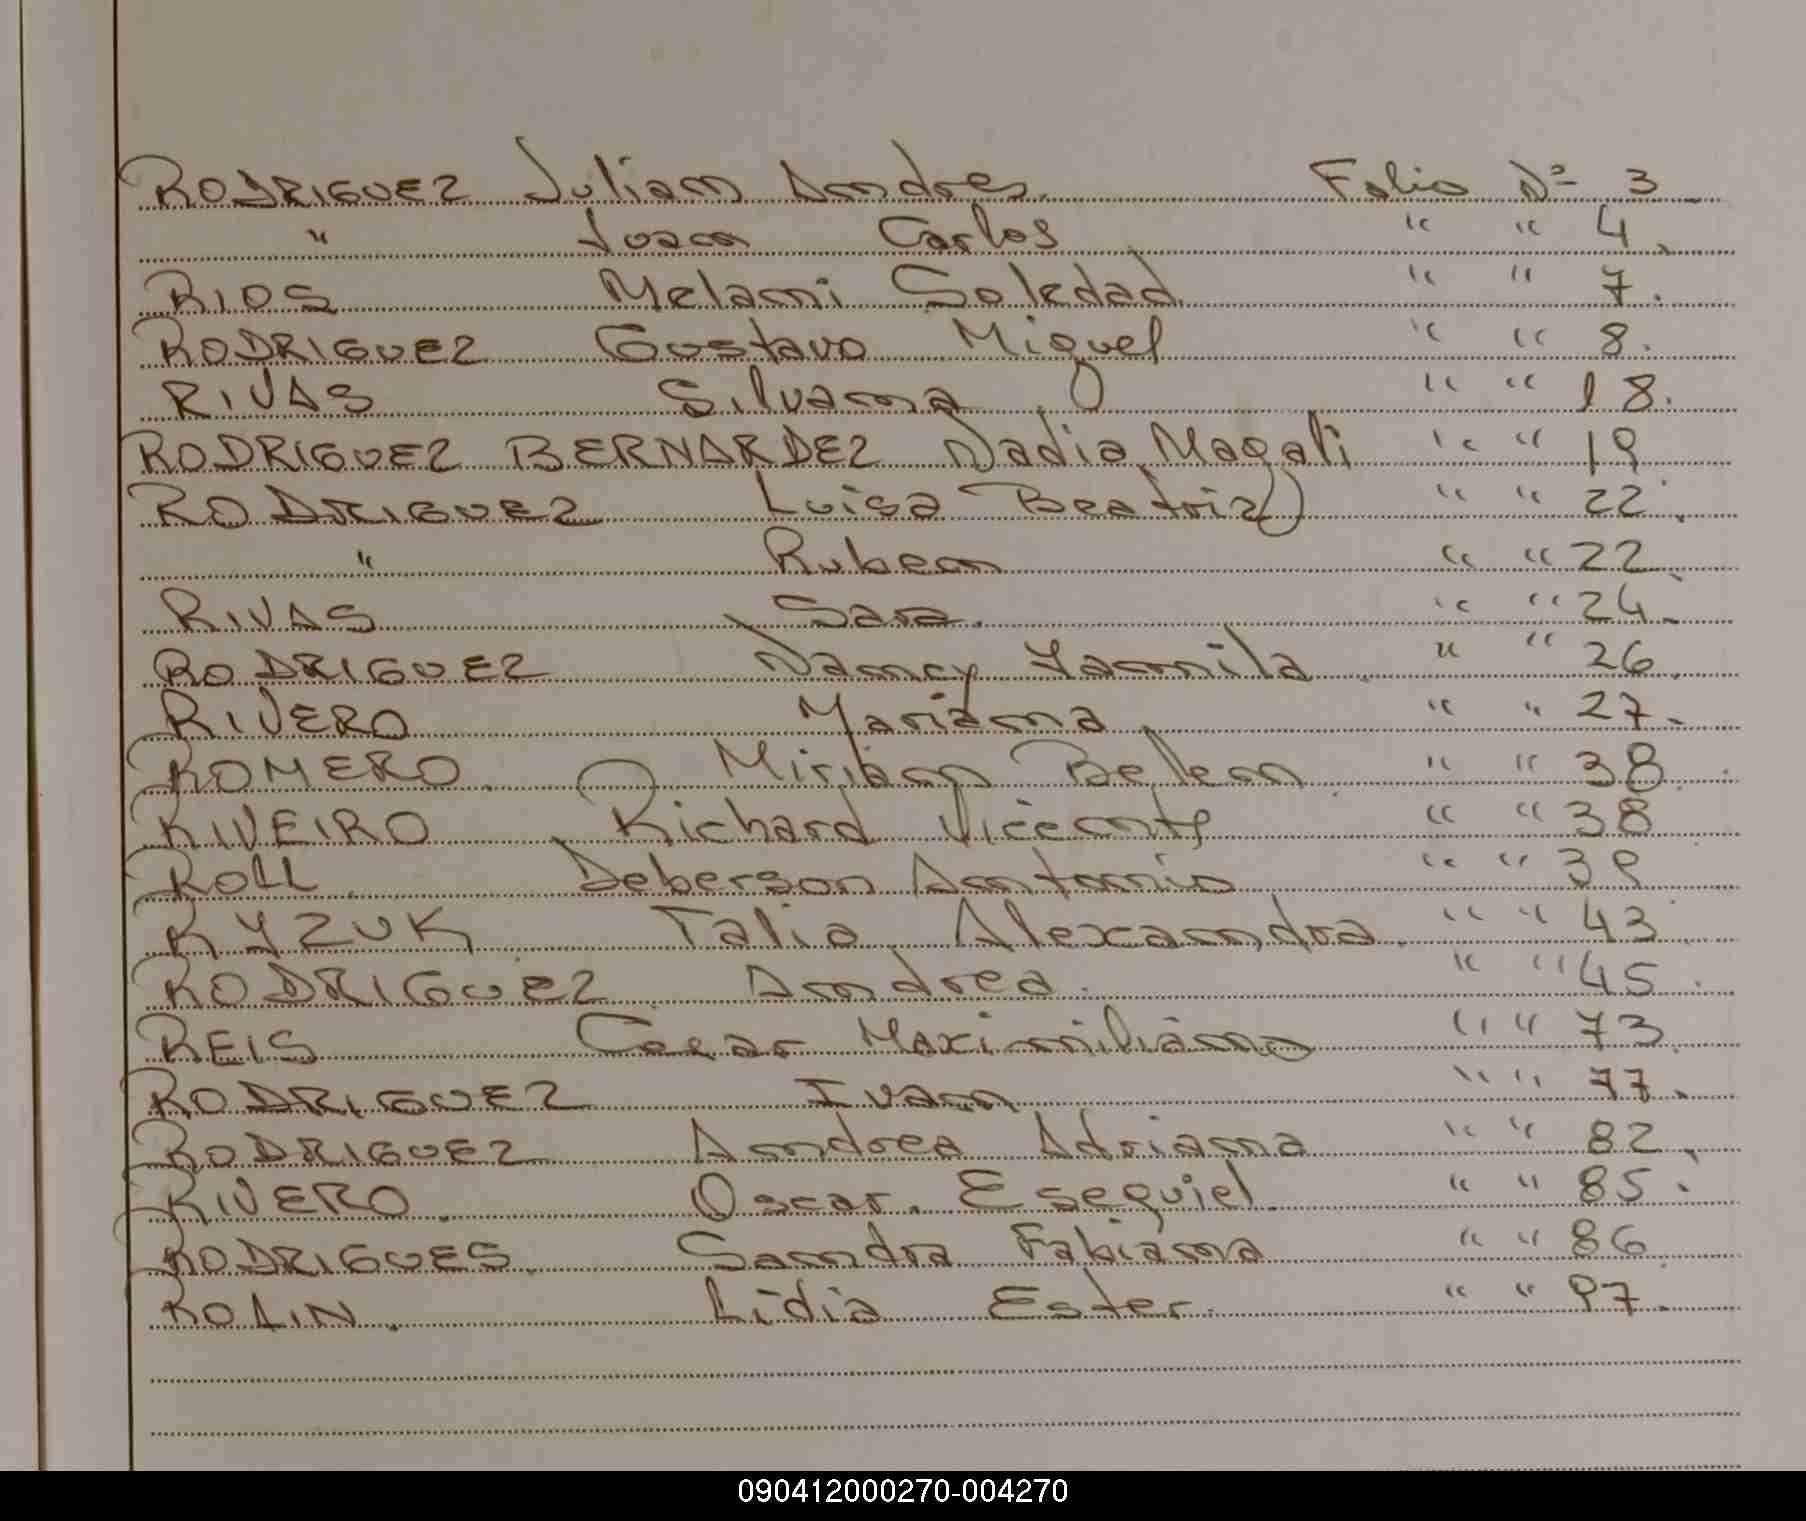 RODRIGUEZ Julian Andres. Folio Nº 3
" Juan Carlos " " 4.
RIOS Melani Soledad " " 7.
RODRIGUEZ Gustavo Miguel " " 8.
RIVAS Silvana " " 18.
RODRIGUEZ BERNARDEZ Nadia Magali " " 19
RODRIGUEZ Luisa Beatriz " " 22.
" Ruben " " 22
RIVAS Sara. " " 24.
RODRIGUEZ Nancy Yamila " " 26
RIVERO Mariana " " 27.
ROMERO. Miriam Belen " " 38
RIVEIRO Richard Vicente " " 38
ROLL Deberson Antonio " " 39
RYZUK Talia Alexandra. " " 43
RODRIGUEZ Andrea. " " 45.
REIS Cesar Maximiliano " " 73.
RODRIGUEZ Ivan " " 77.
RODRIGUEZ Andrea Adriana " " 82.
RIVERO. Oscar. Esequiel. " " 85.
RODRIGUES. Sandra Fabiana " " 86
ROLIN. Lidia Ester. " " 97.
090412000270-004270